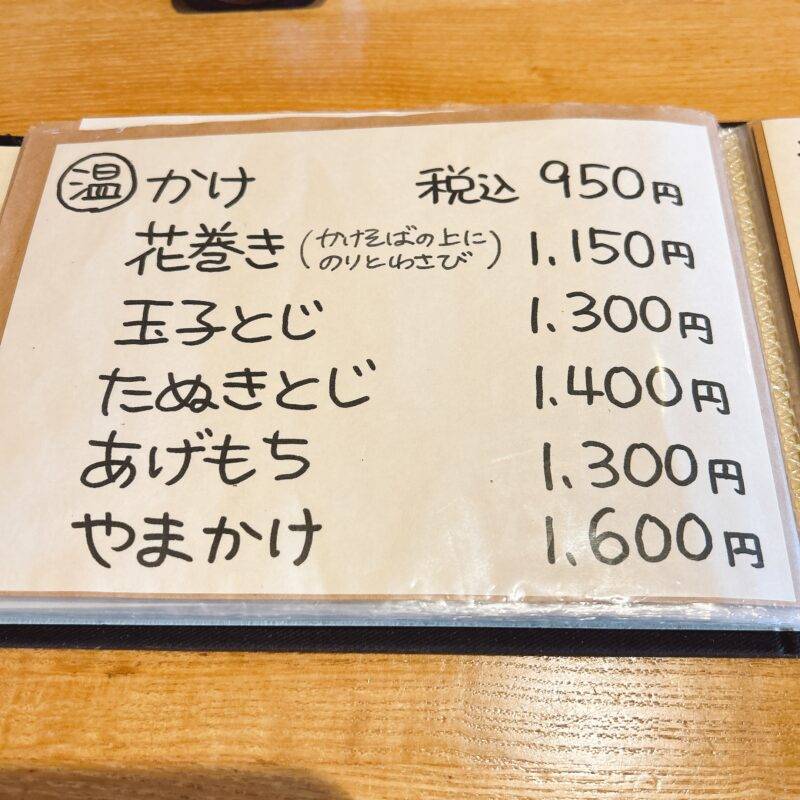 温 かけ 税込 950円
花巻き(かけそばの上にのりとわさび) 1.150円
玉子とじ 1.300円
たぬきとじ 1.400円
あげもち 1.300円
やまかけ 1.600円